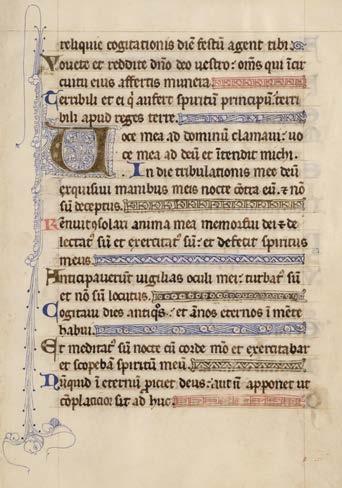 reliquie cogitationis diē festū agent tibi.
Vouete et reddite dn̄o deo vestro: om̄s qui ī cir
cuitu eius affertis munera.
Terribili et ei q̇ aufert spiritū principū: terri
bili apud reges terre.
Voce mea ad dominū clamaui: uo
ce mea ad deū et ītendit michi.
In die tribulationis mee deū
exquisiui manibus meis nocte cōtra eū: ⁊ nō
sū deceptus.
Renuit ꝯsolari anima mea memor fui dei ⁊ de
lectatꝰ sū et exercitatꝰ sū: et defecit spiritus
meus.
Anticipauerūt vigilias oculi mei: turbatꝰ sū
et nō sū locutus.
Cogitaui dies antiqͦs: et ānos eternos ī mēte
habui.
Et meditatꝰ sū nocte cū corde mͦ et exercitabar
et scopebā spiritū meū.
Nūquid ī eternū ꝓiciet deus: aut nō apponet ut
cōplacitior sit ad huc.